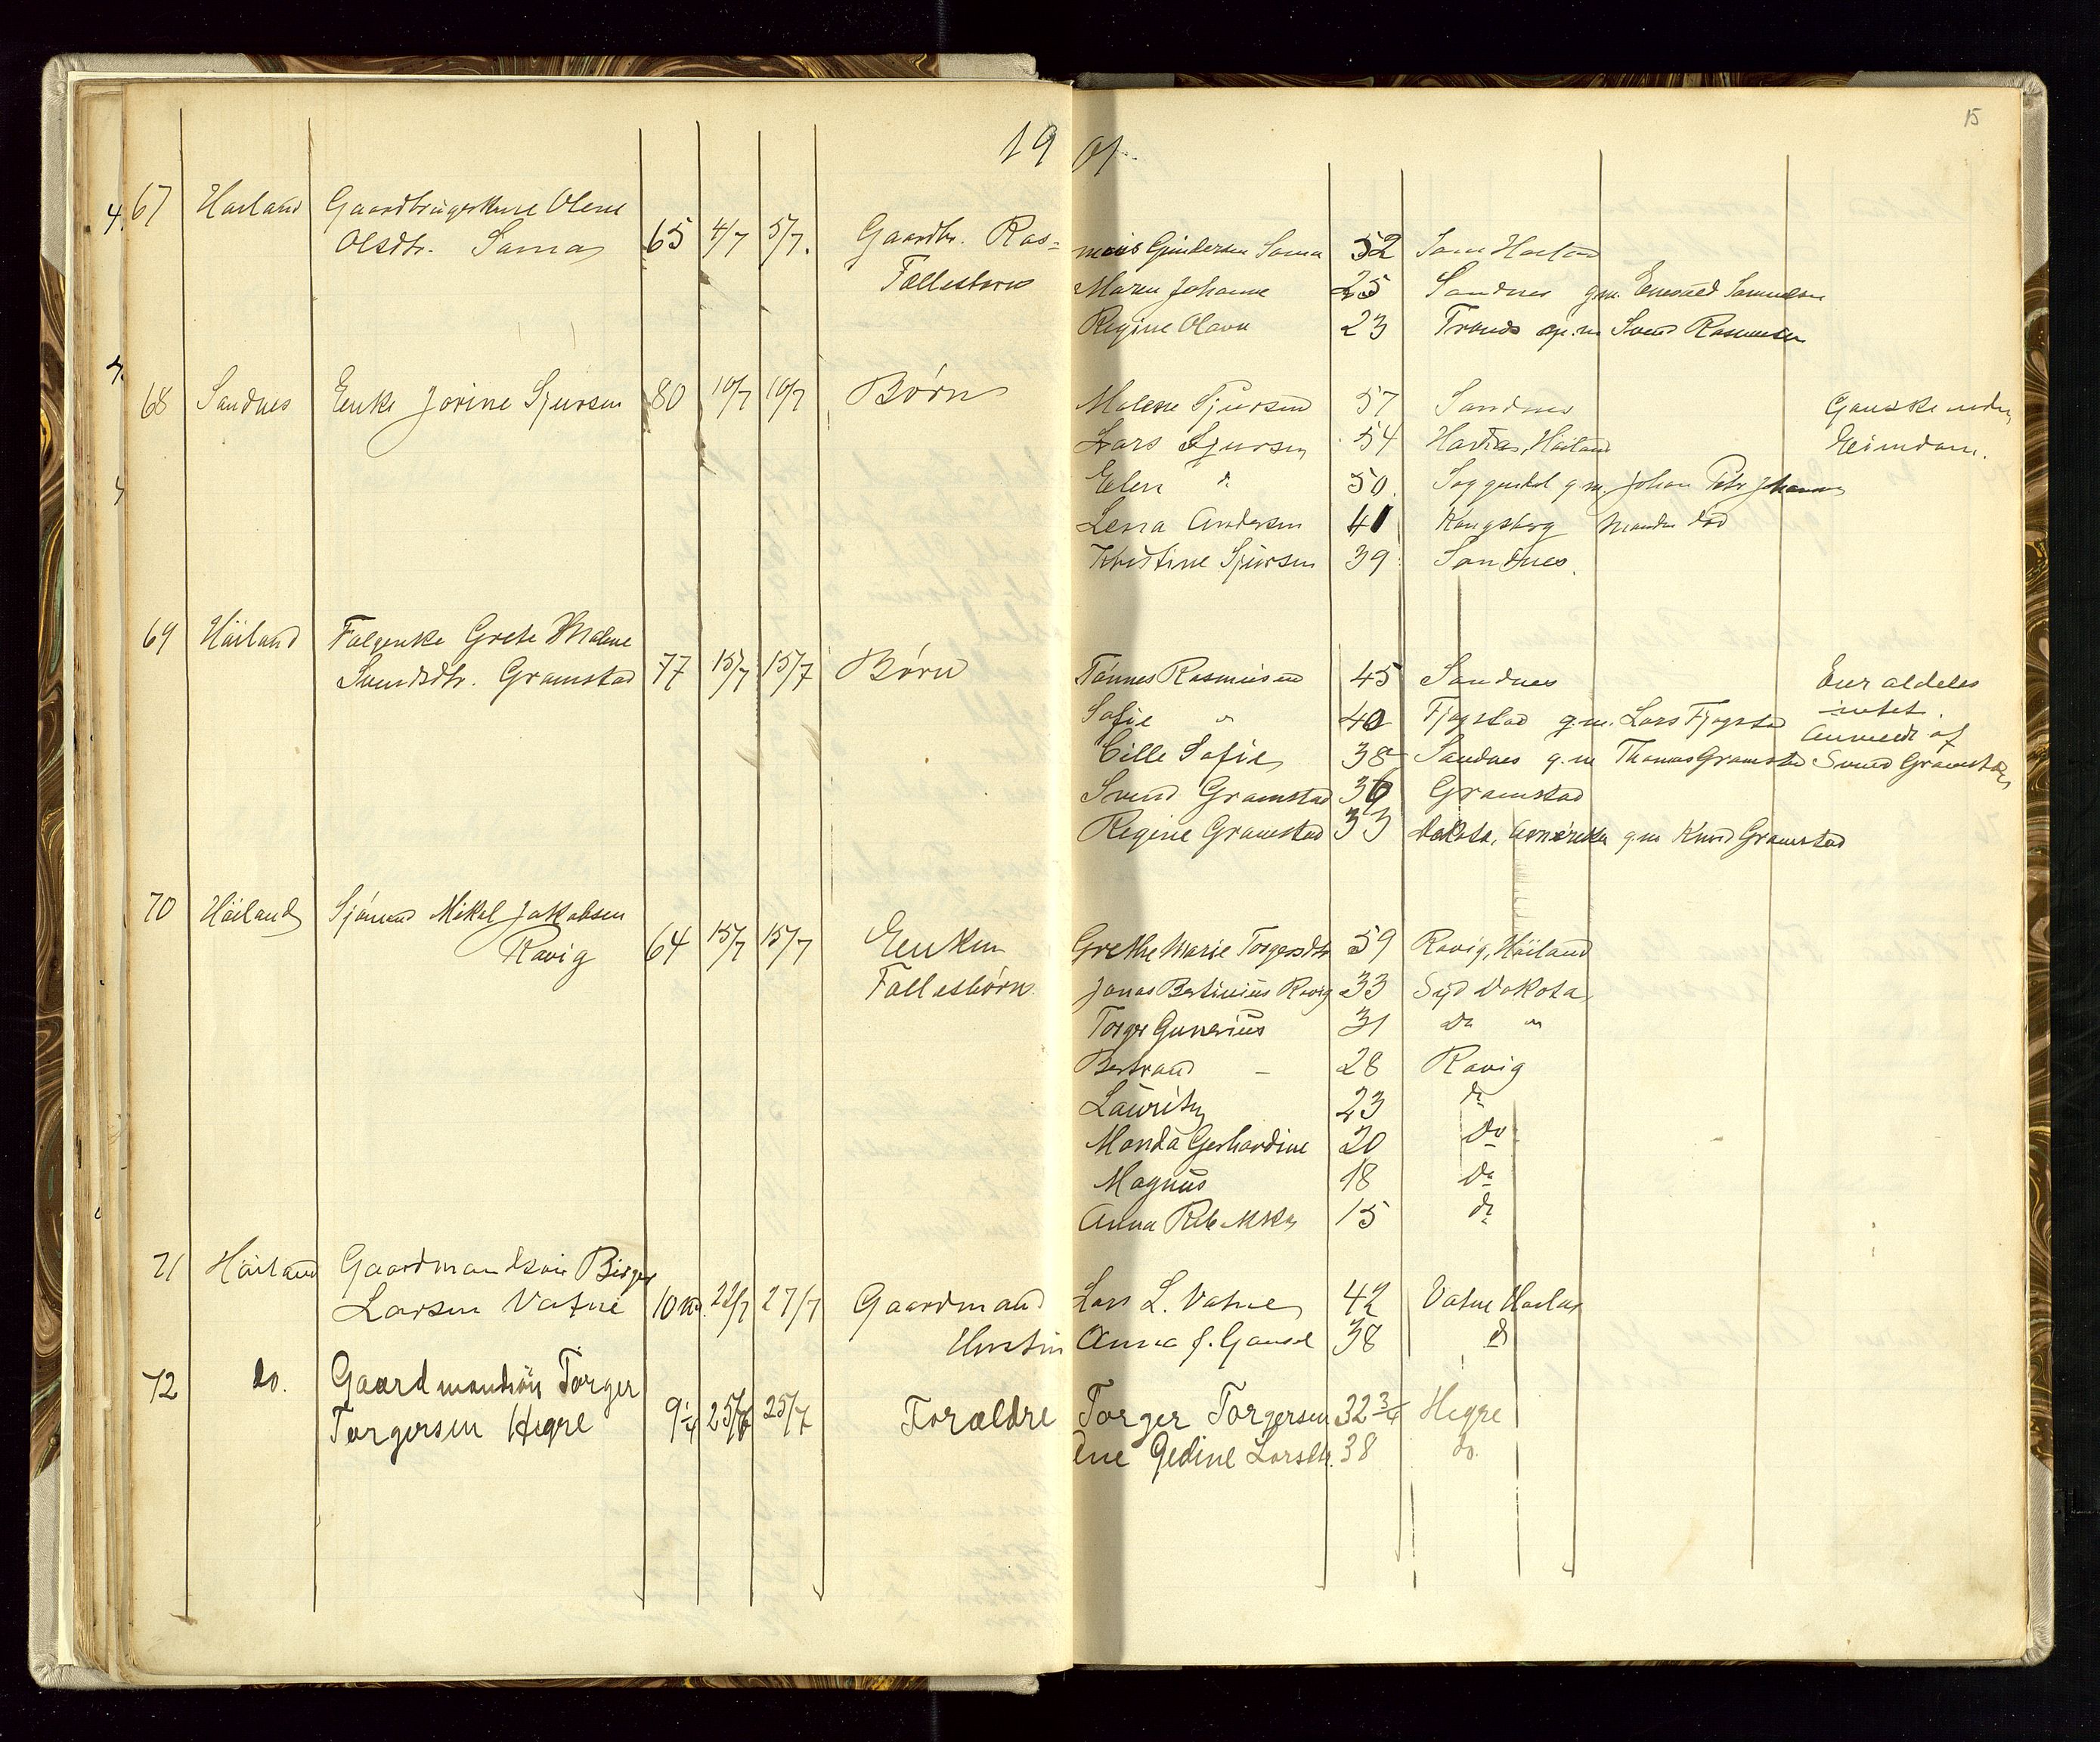 15
19 01
67 Høiland Gaardbrugerkone Olene
Olsdtr. Soma 65 4/7 5/7. Gaardbr. Ras= mus Gundersen Soma 52 Soma Høiland
Fællesbørn Maren Johanne 25 Sandnes g.m. Enevald Samuelsen
Regine Olava 23 g.m. Svend Rasmussen
68 Sandnes Enke Jorine Sjursen 80 10/7 10/7 Børn Malene Sjursen 57 Sandnes Ganske uden
Lars Sjursen 54 Høiland Eiendom.
Elen do 50. g.m. Johan Petr Johannes
Lena Andersen 41 Kongsberg Manden død
Kristine Sjursen 39 Sandnes.
69 Høiland Folgenke Grete Malene
Svendsdtr. Gramstad 77 15/7 15/7 Børn Tønnes Rasmussen 45 Sandnes Eier aldeles
intet.
Sofie " 40 Fjogstad g.m. Lars Fjogstad Anmeldt af
Cille Sofie 38 Sandnes g.m. Thomas Gramstad Svend Gramstad
Svend Gramstad 36 Gramstad
Regine Gramstad 33 Dakota, Amerika g.m. Knud Gramstad
70 Høiland Sjømand Mikal Jakobsen
Rovig 64 15/7 15/7 Enken Grethe Marie Torgersdtr 59 Rovig, Høiland
Fællesbørn. Jonas Bertinius Rovig 33 Syd Dakota
Torger Gunerius 31 do "
Bertrand - 28 Rovig
Lauritz 23 do
Manda Gerhardine 20 do
Magnus 18 do
Anna Rebekka 15 do
71 Høiland Gaardmandsøn Birger
Larsen Vatne 10 22/7 27/7 Gaardmand Lars L. Vatne 42 Vatne Høiland
Hustru Anna J. Gausel 38 do
72 do. Gaardmandsøn Torger
Torgersen Hegre 9 1/4 25/7 25/7 Forældre Torger Torgersen 32 3/4 Hegre
Ane Gedine Larsdtr. 38 do.